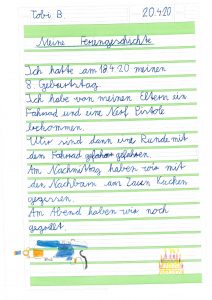 Tobi B. 20.4.20
Meine Feriengeschichte
Ich hatte am 18.4.20 meinen
8. Geburtstag.
Ich habe von meinen Eltern ein
Fahrrad und eine Nerf Pistole
bekommen.
Wir sind dann eine Runde mit
dem Fahrrad gefahren.
Am Nachmittag haben wir mit
den Nachbarn am Zaun Kuchen
gegessen.
Am Abend haben wir noch
gegrillt.